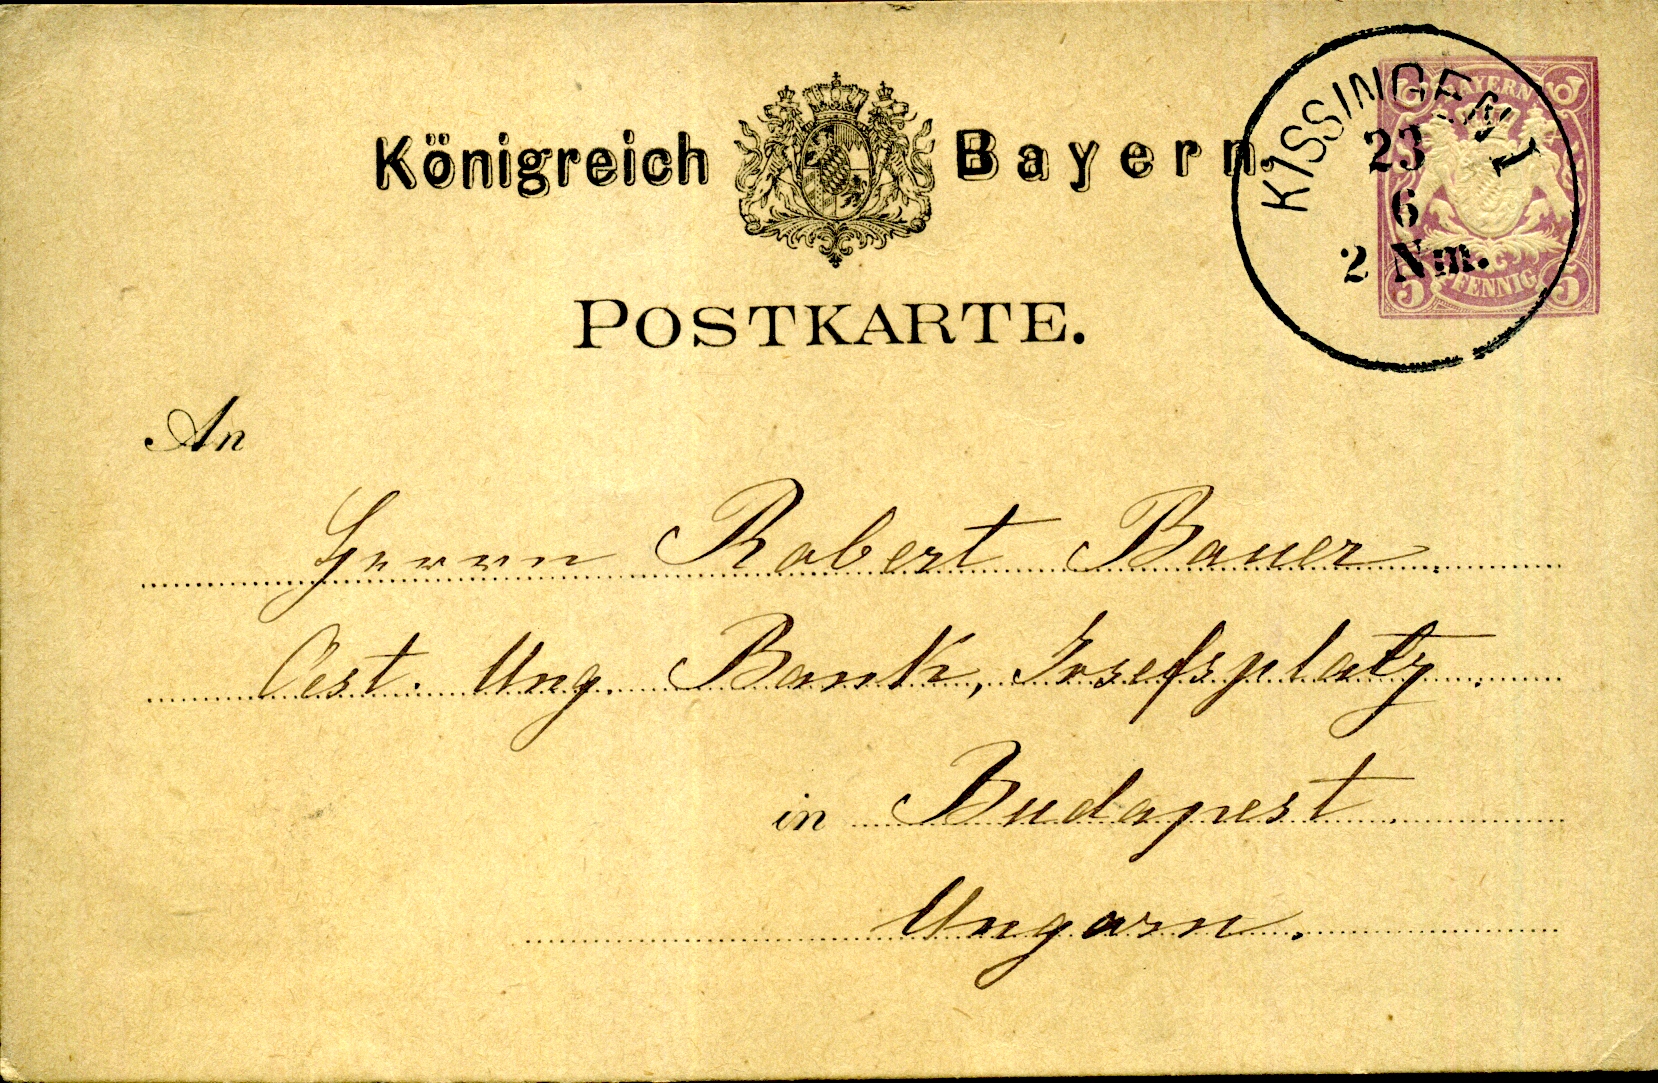 Königreich Bayern.
KISSINGEN I
23
6
2 Nm.
BAYERN
5 PFENNIG 5
POSTKARTE.
An
Herrn Robert Bauer.
Oest. Ung. Bank, Josefsplatz.
in Budapest
Ungarn.